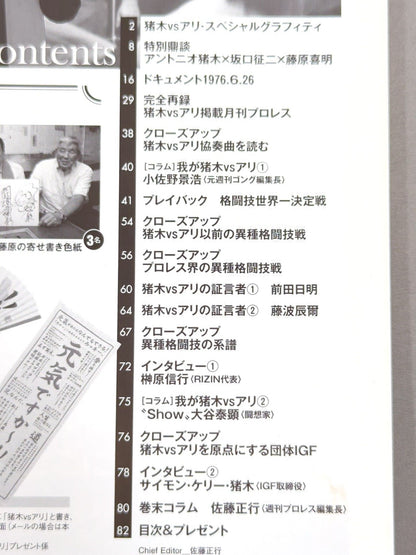 ontents
2 猪木vsアリ・スペシャルグラフィティ
8 特別鼎談
アントニオ猪木×坂口征二×藤原喜明
16 ドキュメント1976.6.26
29 完全再録
猪木vsアリ掲載月刊プロレス
38 クローズアップ
猪木vsアリ協奏曲を読む
40 [コラム] 我が猪木vsアリ①
小佐野景浩(元週刊ゴング編集長)
41 プレイバック 格闘技世界一決定戦
54 クローズアップ
猪木vsアリ以前の異種格闘技戦
56 クローズアップ
プロレス界の異種格闘技戦
60 猪木vsアリの証言者① 前田日明
64 猪木vsアリの証言者② 藤波辰爾
67 クローズアップ
異種格闘技の系譜
72 インタビュー①
榊原信行(RIZIN代表)
75 [コラム] 我が猪木vsアリ②
〝Show〟大谷泰顕(闘想家)
76 クローズアップ
猪木vsアリを原点にする団体IGF
78 インタビュー②
サイモン・ケリー・猪木(IGF取締役)
80 巻末コラム 佐藤正行(週刊プロレス編集長)
82 目次&プレゼント
Chief Editor__佐藤正行
藤原の寄せ書き色紙 3名
元気ですか〜!
道
「猪木vsアリ」と書き、
面(メールの場合は本
リ」プレゼント係